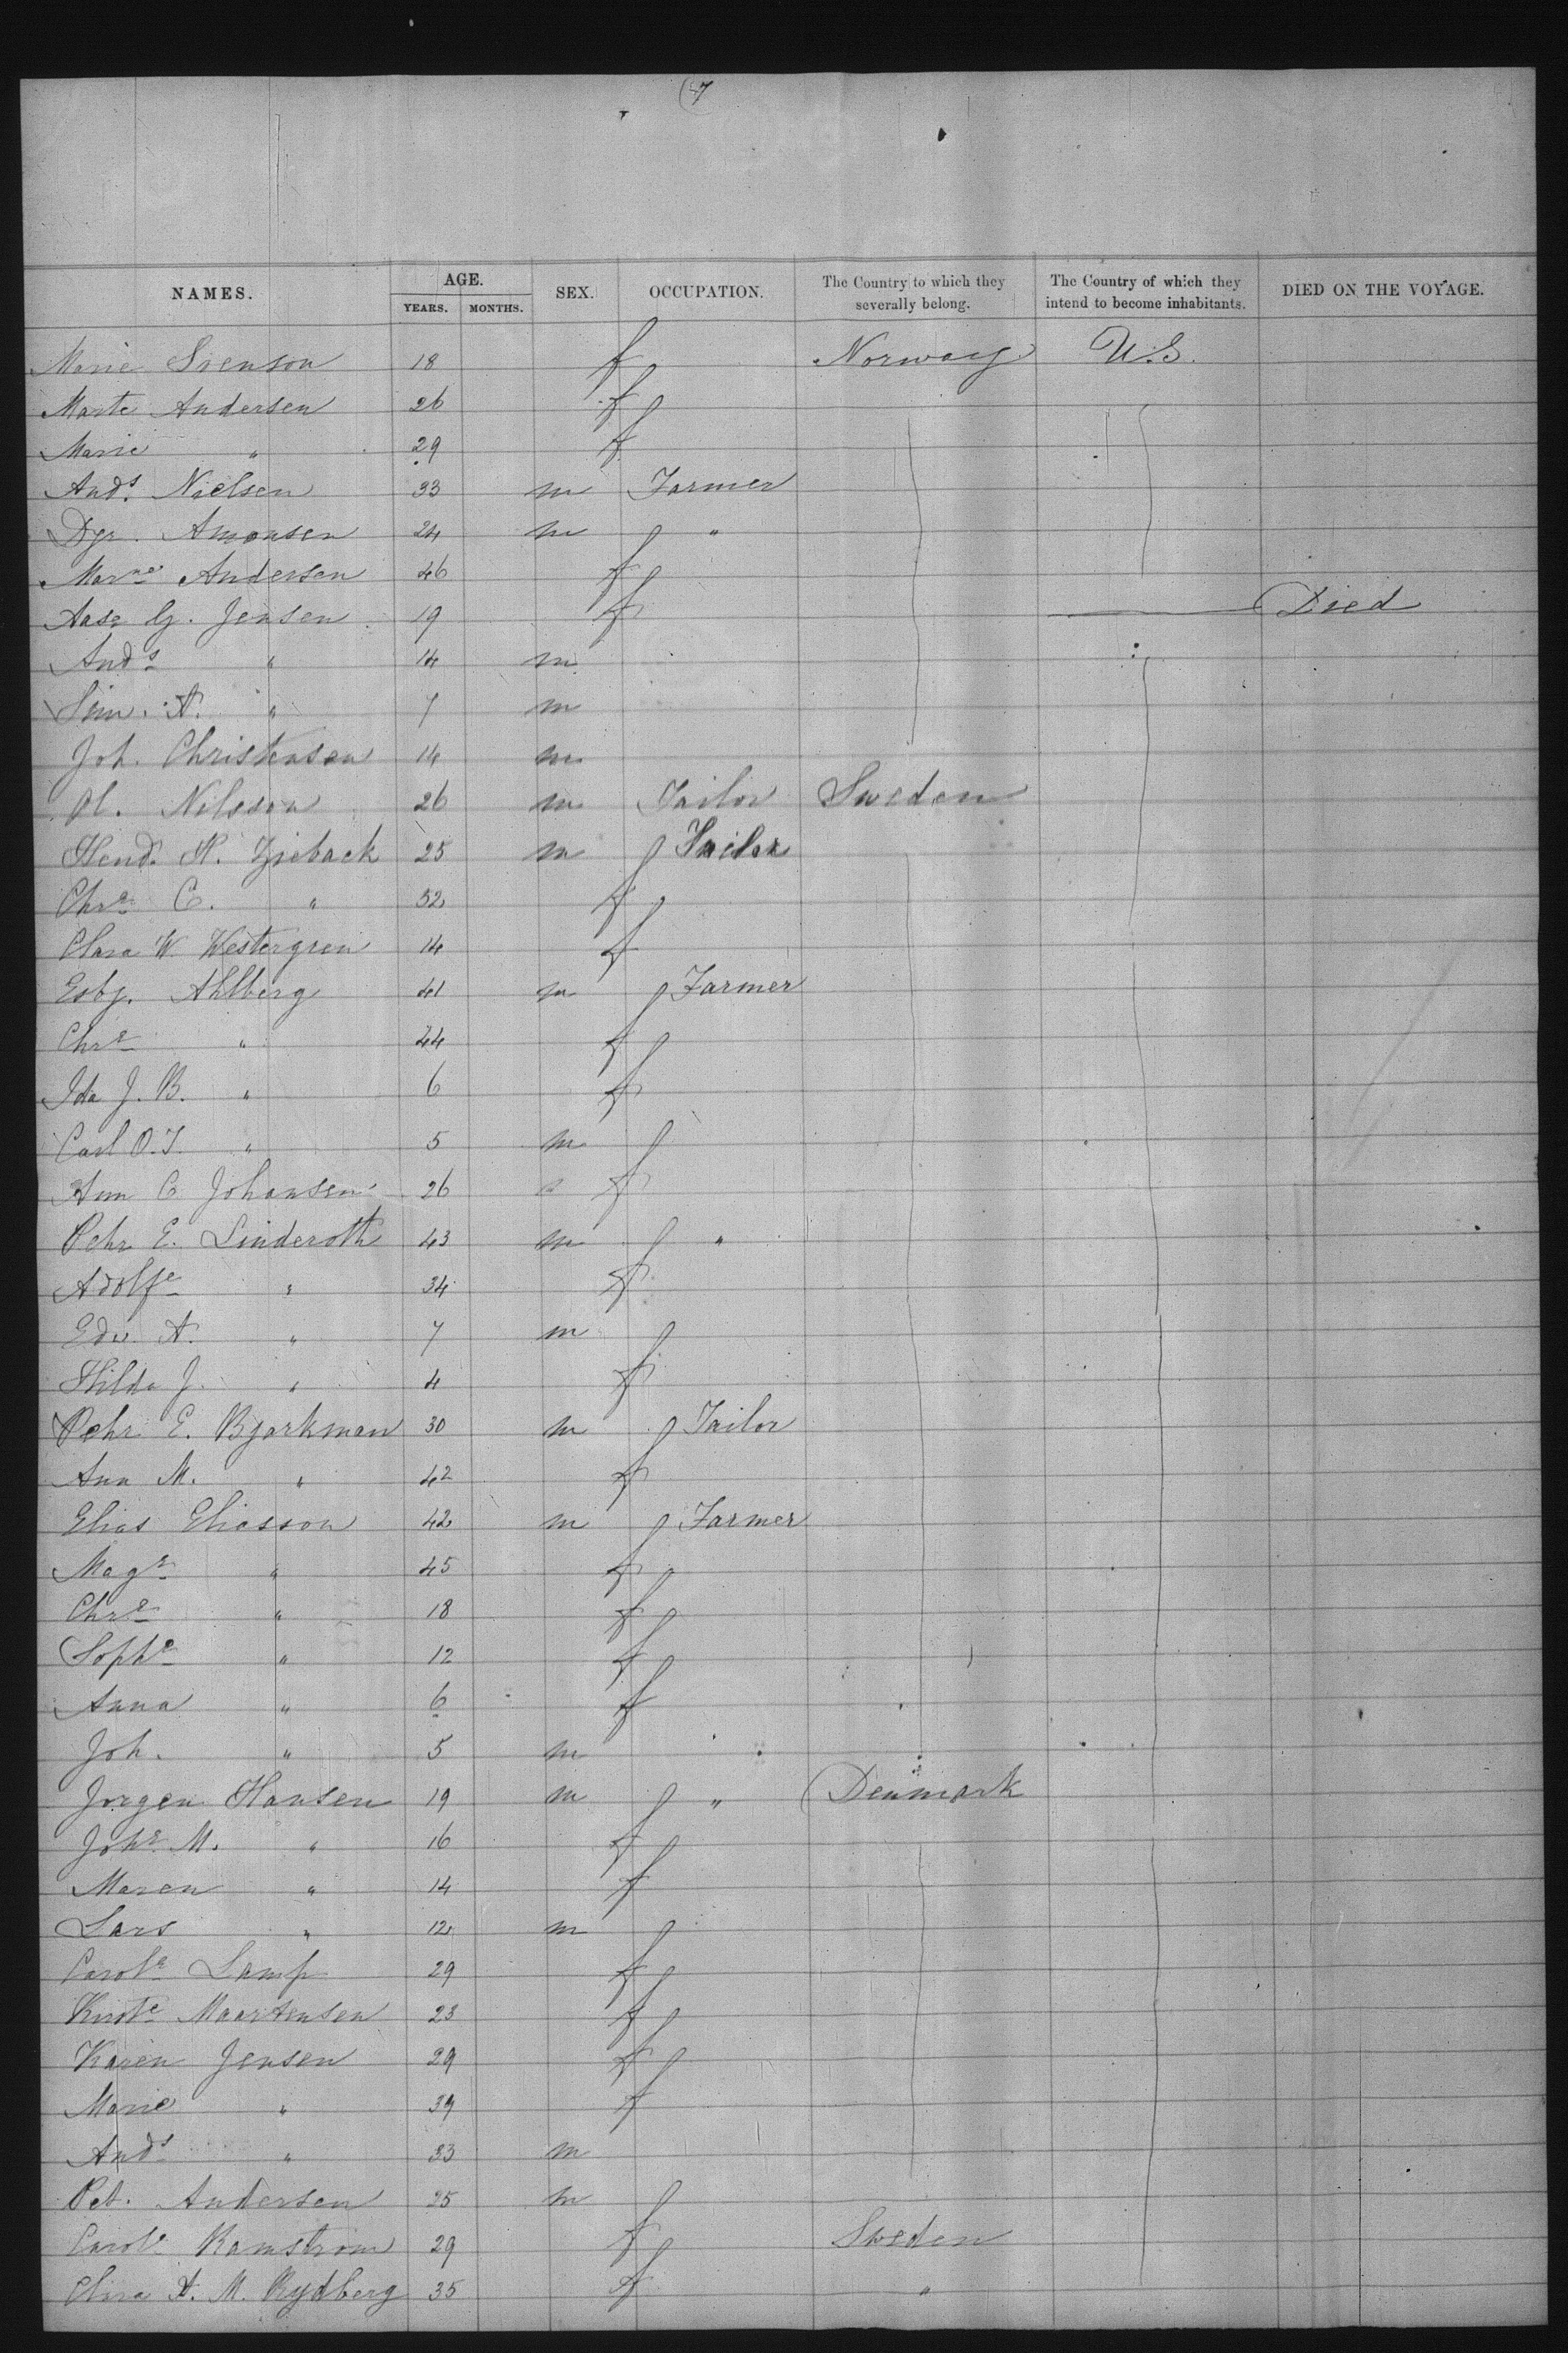 (7
NAMES. AGE. YEARS. MONTHS. SEX. OCCUPATION. The Country to which they severally belong. The Country of which they intend to become inhabitants. DIED ON THE VOYAGE.
Marie Svenson 18 f Norway U.S.
Marte Andersen 26 f
Marie " 29 f
Ands. Nielsen 33 m Farmer
Dgr. Amonsen 24 m "
Marne Andersen 46 f
Aase G. Jensen 19 f Died
Ands " 14 m
Sim. A. " 7 m
Joh. Christensen 14 m
Ol. Nilsson 26 m Tailor Sweden
Hend. N. 25 m Tailor
Chre C. " 52 f
Clara W. Westergren 14 f
Esbj. Ahlberg 41 m Farmer
Chre " 44 f
Ida J. B. " 6 f
Carl O. T. " 5 m
Ann C Johansen 26 f
Pehr E. Linderoth 43 m "
Adolfe " 34 f
Edv. A. " 7 m
Hilda J. " 4 f
Pehr E. Bjorkman 30 m Tailor
Ann M. " 42 f
Elias Eliasson 42 m Farmer
Mage " 45 f
Chre " 18 f
Sophe " 12 f
Anna " 6 f
Joh. " 5 m
Jorgen Hansen 19 m " Denmark
Johe M. " 16 f
Maren " 14 f
Lars " 12 m
Carole Lamp 29 f
Kirste Maartensen 23 f
Karen Jensen 29 f
Marie " 39 f
Ands " 33 m
Pet. Andersen 25 m
Carole Ramstrom 29 f Sweden
Clara A. M. Rydberg 35 f "